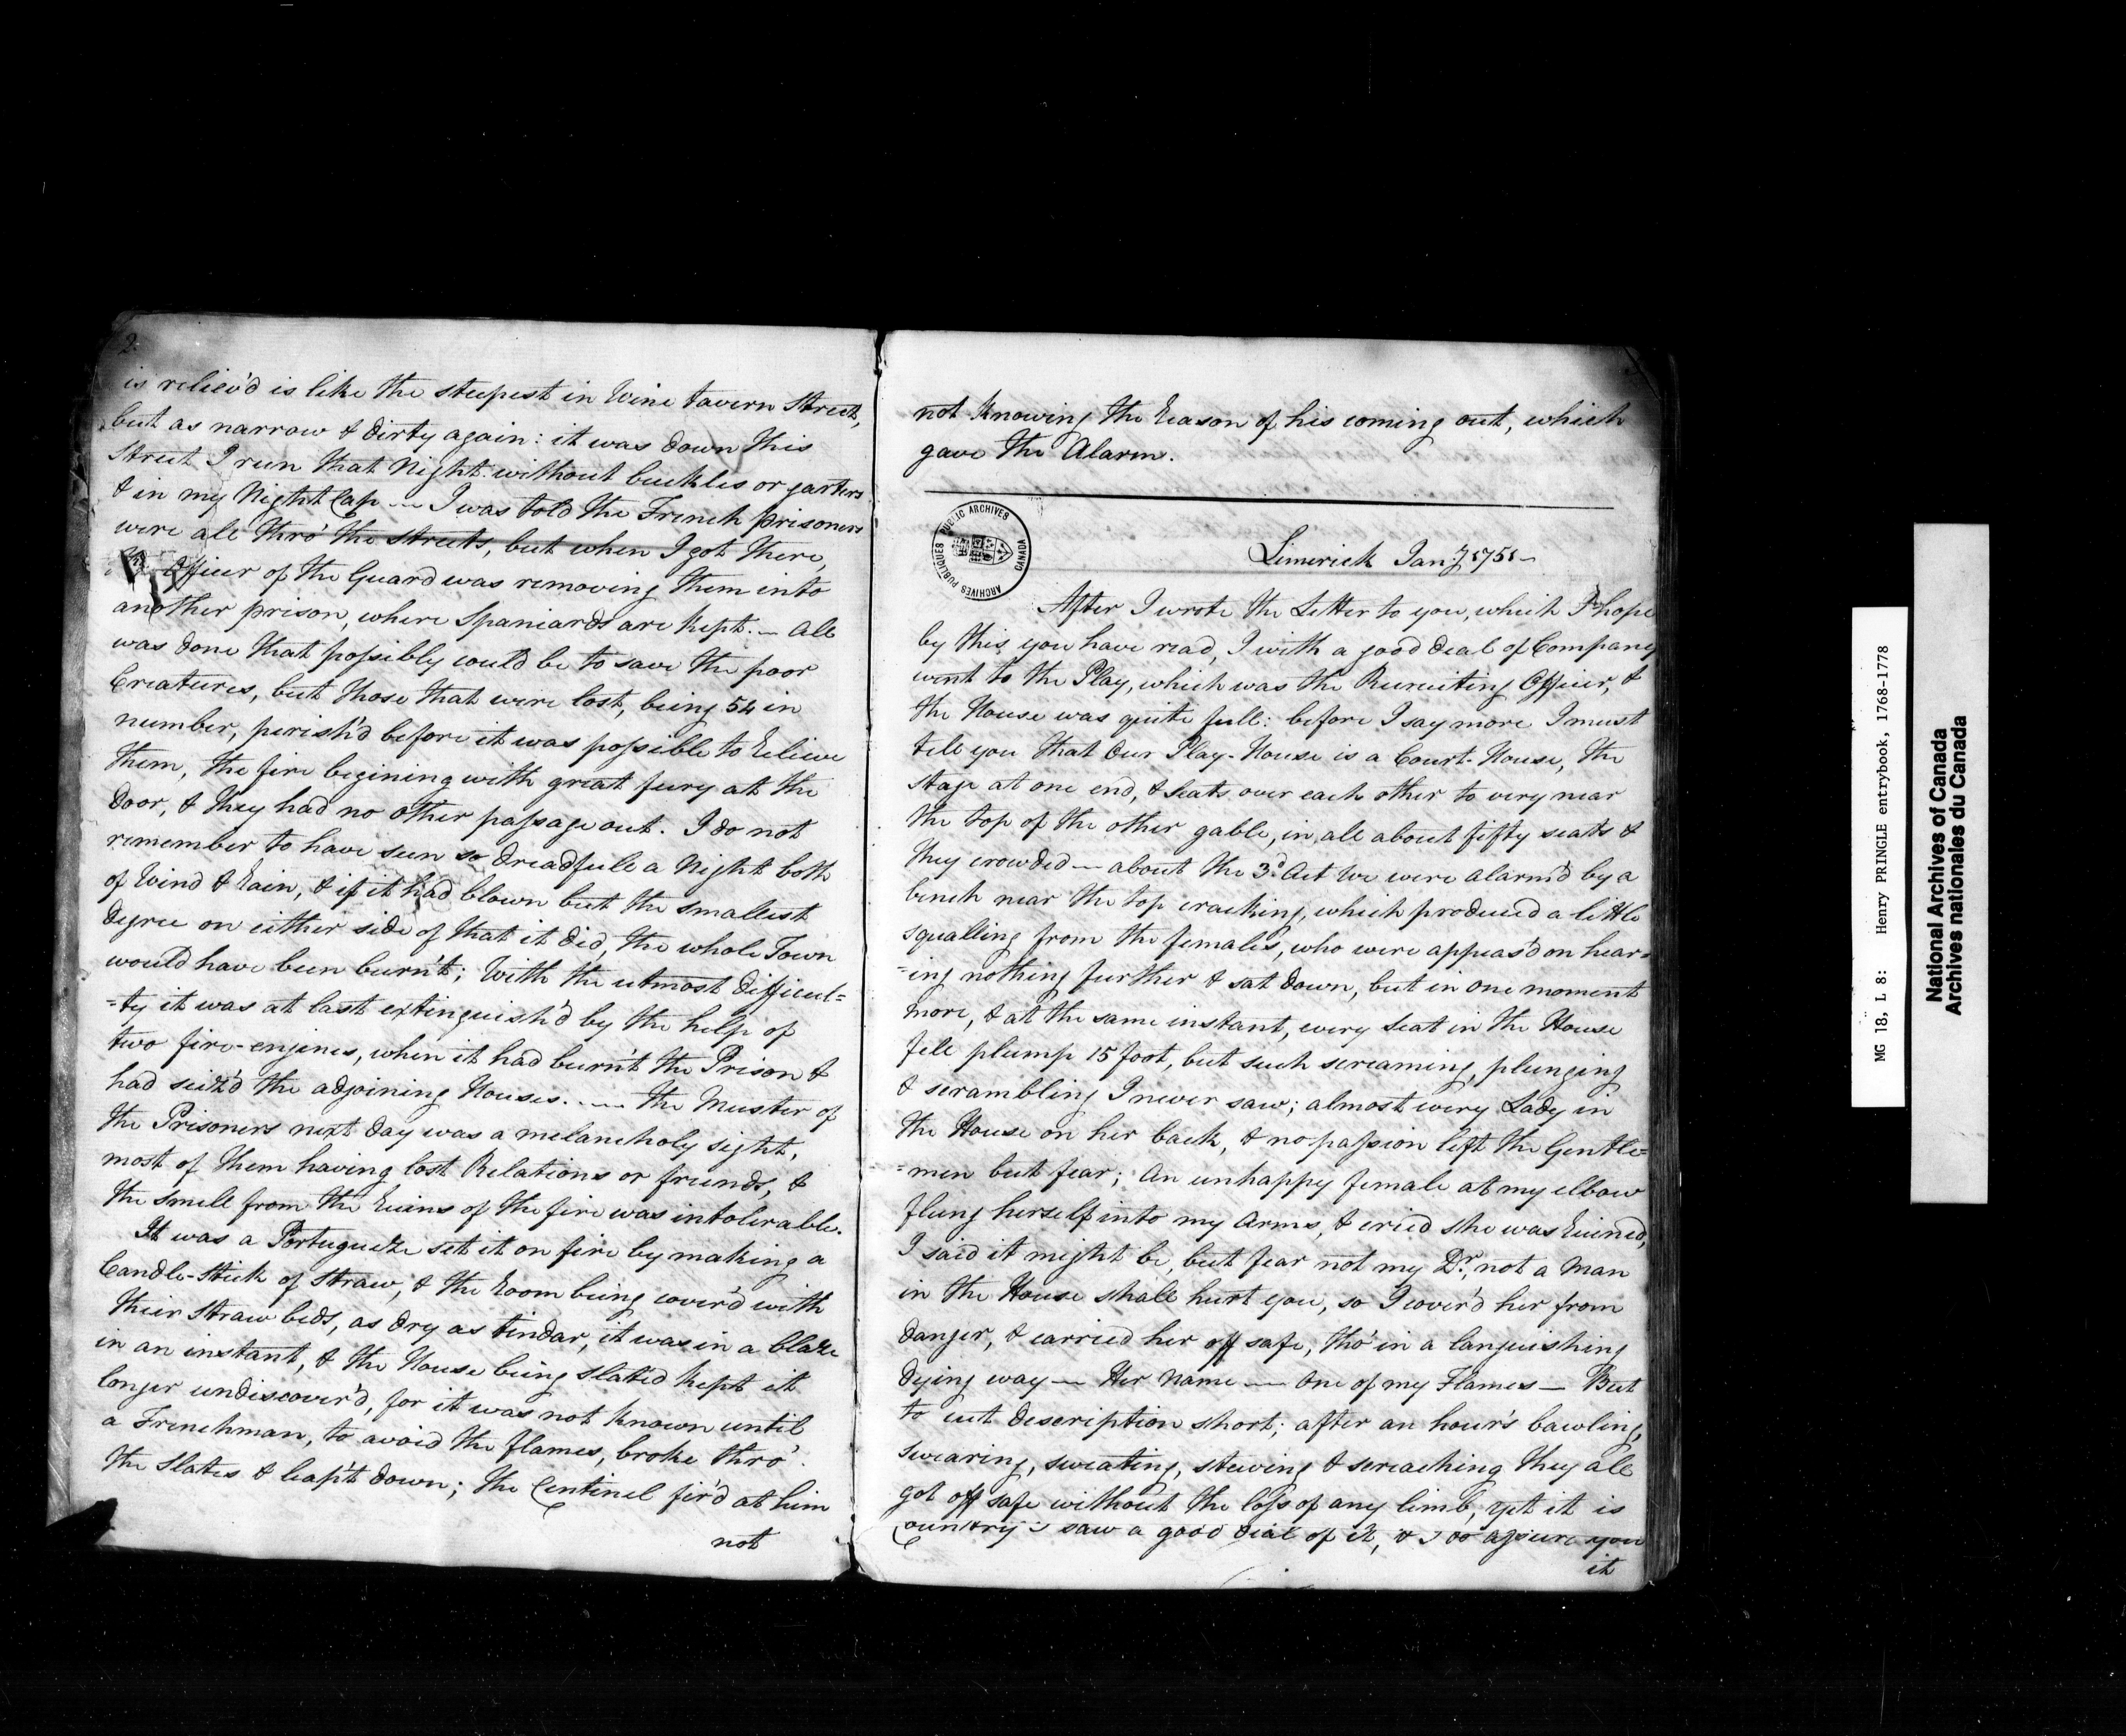 2.
is reliev'd is like the steepest in Wine tavern Street,
but as narrow & dirty again: it was down this
Street I run that Night without buckles or garters
& in my Night Cap — I was told the French prisoners
were all thro' the streets, but when I got there,
the Officer of the Guard was removing them into
another prison, where Spaniards are kept. — All
was done that possibly could be to save the poor
Creatures, but those that were lost, being 54 in
number, perish'd before it was possible to Relieve
them, the fire begining with great fury at the
door, & they had no other passage out. I do not
remember to have seen so dreadfull a Night both
of Wind & Rain, & if it had blown but the smallest
degree on either side of that it did, the whole Town
would have been burn't; With the utmost difficul=
=ty it was at last extinguish'd by the help of
two fire-engines, when it had burn't the Prison &
had seiz'd the adjoining Houses. — The Muster of
the Prisoners next day was a melancholy sight,
most of them having lost Relations or friends, &
the smell from the Ruins of the fire was intolerable.
It was a Portugueze set it on fire by making a
Candle-Stick of Straw, & the Room being cover'd with
their straw beds, as dry as tindar, it was in a blaze
in an instant, & the House being slated kept it
longer undiscover'd, for it was not known until
a Frenchman, to avoid the flames, broke thro'
the slates & leap't down; the Centinel fir'd at him
not
not knowing the Reason of his coming out, which
gave the Alarm.
PUBLIC ARCHIVES CANADA
ARCHIVES PUBLIQUES
Limerick Jany 1758 —
After I wrote the Letter to you, which I hope
by this you have read, I with a good deal of Company
went to the Play, which was the Recruiting Officer, &
the House was quite full: before I say more I must
tell you that Our Play-House is a Court-House, the
stage at one end, & seats over each other to very near
the top of the other gable, in all about fifty seats &
they crowded — about the 3d. Act We were alarm'd by a
bench near the top cracking, which produced a little
squalling from the females, who were appeas'd on hear=
=ing nothing further & sat down, but in one moment
more, & at the same instant, every seat in the House
fell plump 15 foot, but such screaming, plunging
& scrambling I never saw; almost every Lady in
the House on her back, & no passion left the Gentle=
=men but fear; An unhappy female at my elbow
flung herself into my Arms, & cried she was Ruined,
I said it might be, but fear not my Dr., not a Man
in the House shall hurt you, so I cover'd her from
danger, & carried her off safe, tho' in a languishing
dying way — Her Name — One of my Flames — But
to cut description short; after an hour's bawling,
swearing, sweating, stewing & screaching they all
got off safe without the loss of any limb, yet it is
Country: I saw a good deal of it, & I do assure you
it
MG 18, L 8: Henry PRINGLE entrybook, 1768-1778
National Archives of Canada
Archives nationales du Canada